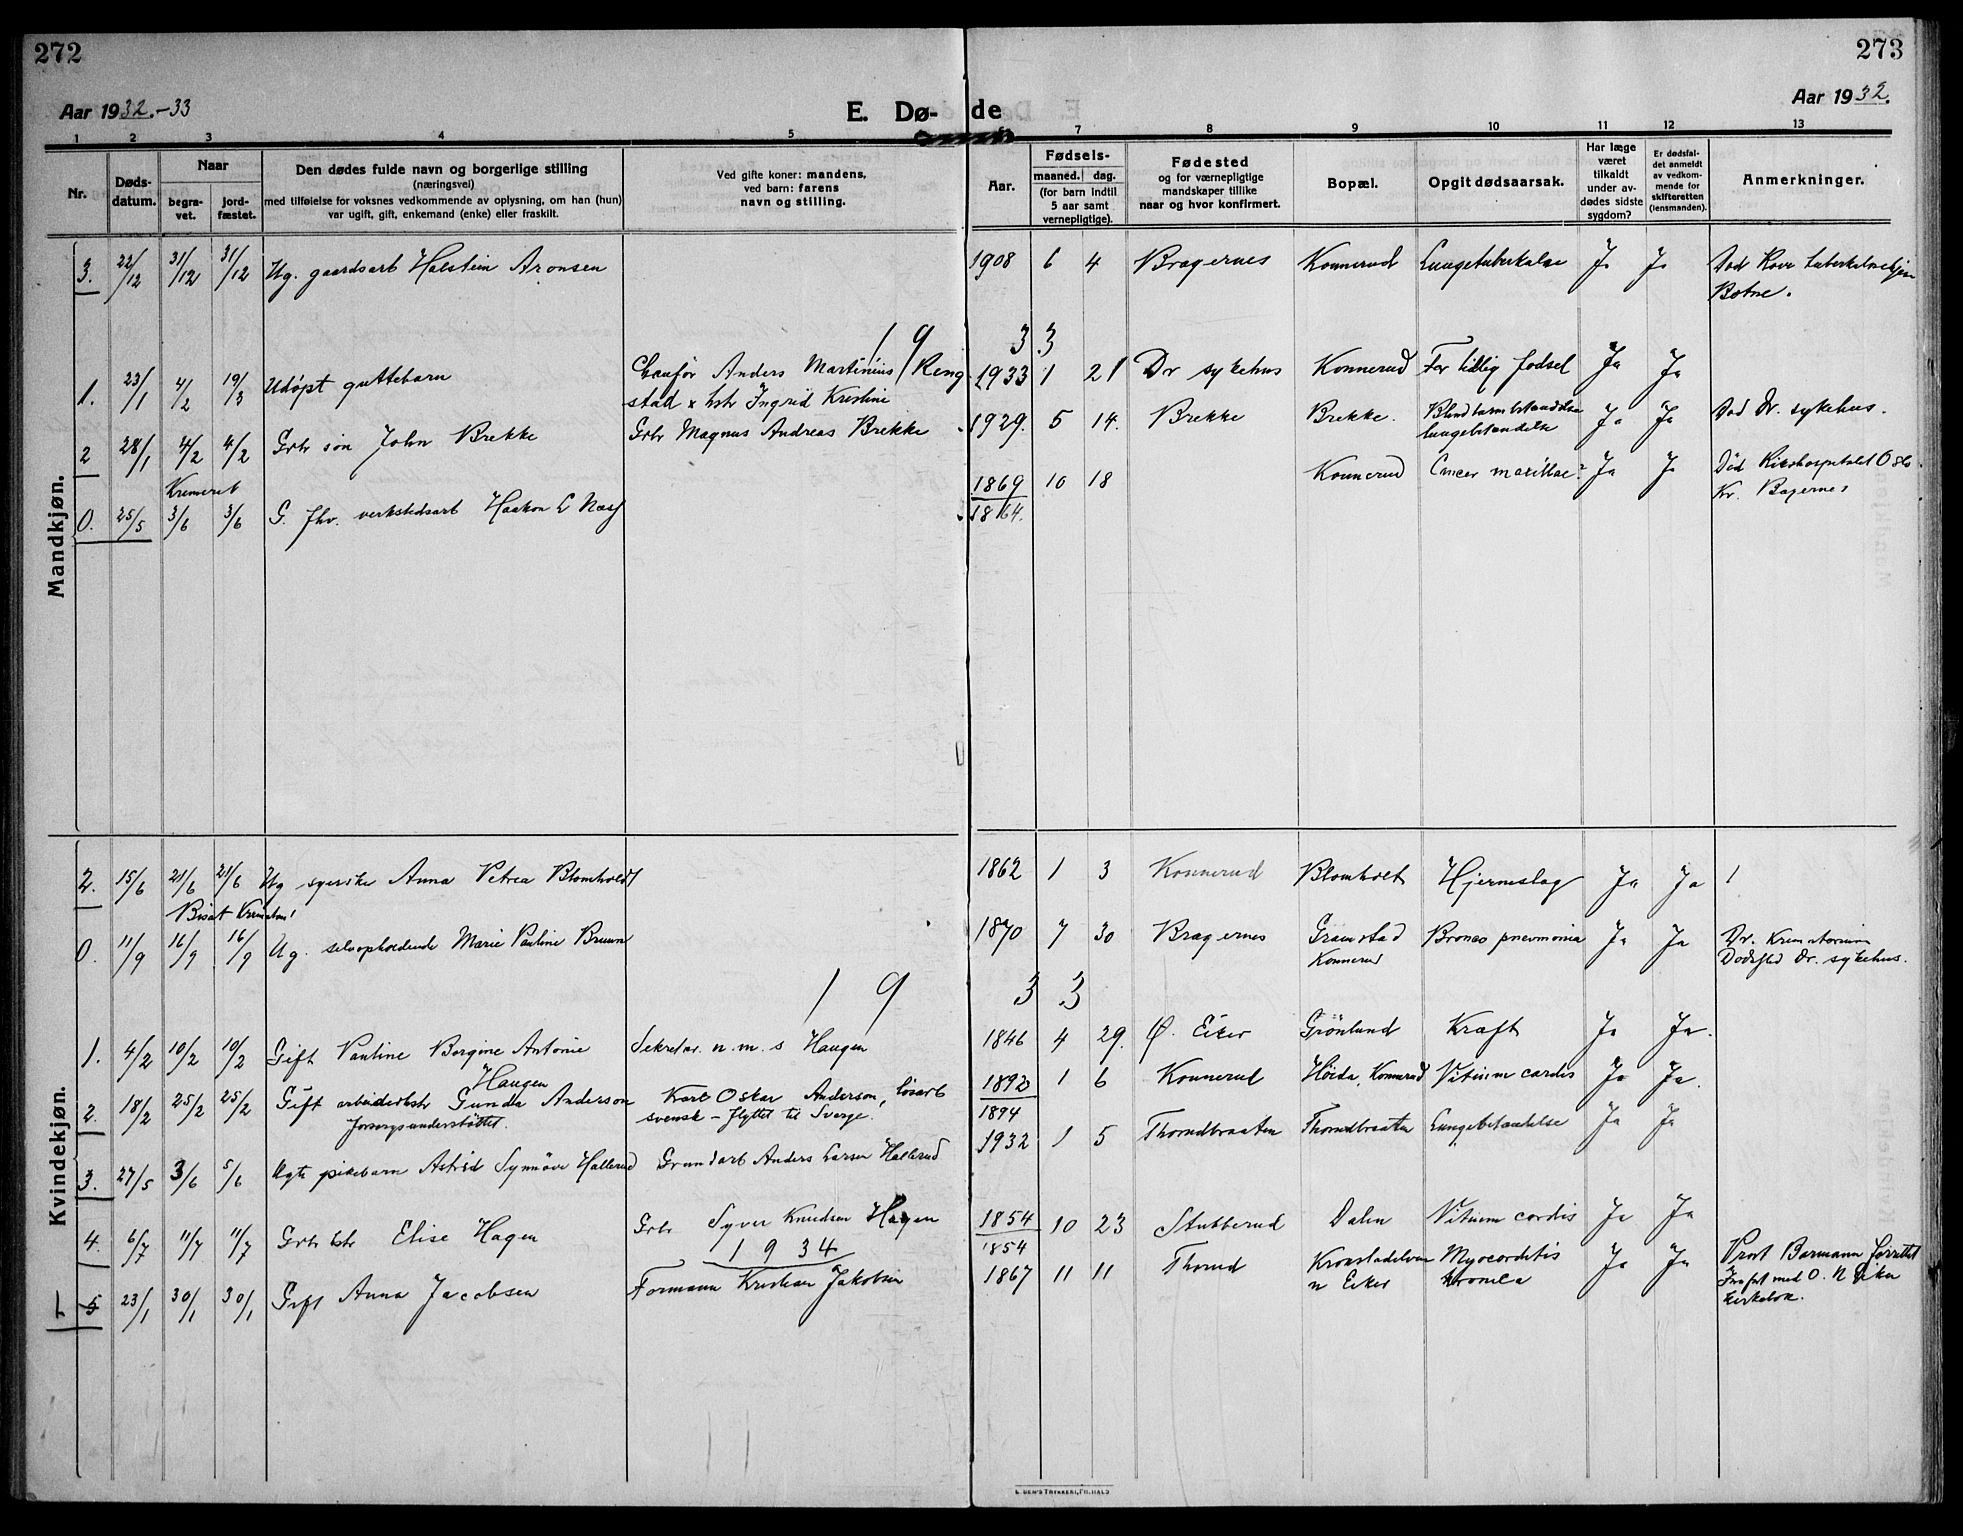 272
273
Aar 1932.-33
E. Dø- de
Aar 1932.
1 2 3 4 5 7 8 9 10 11 12 13
Nr.
Døds-
datum.
Naar
begra-
vet.
jord-
fæstet.
Den dødes fulde navn og borgerlige stilling
(næringsvei)
med tilføielse for voksnes vedkommende av oplysning, om han (hun)
var ugift, gift, enkemand (enke) eller fraskilt.
Ved gifte koner: mandens,
ved barn: farens
navn og stilling.
Aar.
Fødsels-
maaned. dag.
(for barn indtil
5 aar samt
vernepligtige).
Fødested
og for værnepligtige
mandskaper tillike
naar og hvor konfirmert.
Bopæl.
Opgit dødsaarsak.
Har læge
været
tilkaldt
under av-
dødes sidste
sygdom?
Er dødsfal-
det anmeldt
av vedkom-
mende for
skifteretten
(lensmanden).
Anmerkninger.
Mandkjøn.
3. 22/12 31/12 31/12 Ug. gaardsarb Halstein Aronsen 1908 6 4 Bragernes Konnerud Lungetuberkulose Ja Ja Død Rove tuberkulosehjem
Botne.
19 33
1. 23/1 4/2 19/3 Udöpt guttebarn Chauför Anders Martinius Ring 1933 1 21 Dr sykehus Konnerud For tidlig fodsel Ja Ja
stad x hstr Ingrid Kristine
2 28/1 4/2 4/2 Grbr sön John Brekke Grbr Magnus Andreas Brekke 1929. 5 14. Brekke Brekke. Blindtarmbetændelse Ja Ja Död Dr. sykehus.
lungebetændelse
Kremeret
0. 25/5 3/6 3/6 G. fhv. verkstedsarb Haakon L Næss 1869 10 18 Konnerud Cancer maxillae? Ja Ja Död Rikshospitalet Oslo
1864. Kr. Bragernes
Kvindekjøn.
2. 15/6 21/6 21/6 Ug syerske Anna Petrea Blomholdt 1862 1 3 Konnerud Blomholt Hjerneslag Ja Ja
Bisat Krematori
0. 11/9 16/9 16/9 Ug. selvopholdende Marie Pauline Bruun 1870 7 30 Bragernes Gramstad Bronco pneumonia Ja Ja Dr. Krematorium
Konnerud Dödssted Dr. sykehus.
19 33
1. 4/2 10/2 10/2 Gift Pauline Borgine Antonie Sekretær. n. m. s Haugen 1846 4 29. Ø. Eiker Grönlund Kræft Ja Ja.
Haugen
2. 18/2 25/2 25/2 Gift arbeiderhstr Gunda Anderson Karl Oskar Anderson, lösarb 1892 1 6 Konnerud Höida, Konnerud Vitium cordis Ja Ja.
forsorgsunderstöttet. svensk - flyttet til Sverge. 1894
3. 27/5 3/6 5/6 Ægte pikebarn Astrid Synnöve Hallerud Grundarb Anders Larsen Hallerud 1932 1 5 Thorudbraaten Thorudbraaten Lungebetændelse Ja Ja
4. 6/7 11/7 11/7 Grbr hstr Elise Hagen Grbr Syver Knudsen Hagen 1854 10 23 Stubberud Dalen Vitium cordis Ja Ja
1934 1854
5 23/1 30/1 30/1 Gift Anna Jacobsen Formann Kristian Jakobsen 1867 11 11 Thorud Kronstadelven Myocorditis Ja Ja Prost Barmann forrettet
n Eiker kronica med O. N Eiker
kirkebok.
E. SEM'S TRYKKERI, FR.HALD